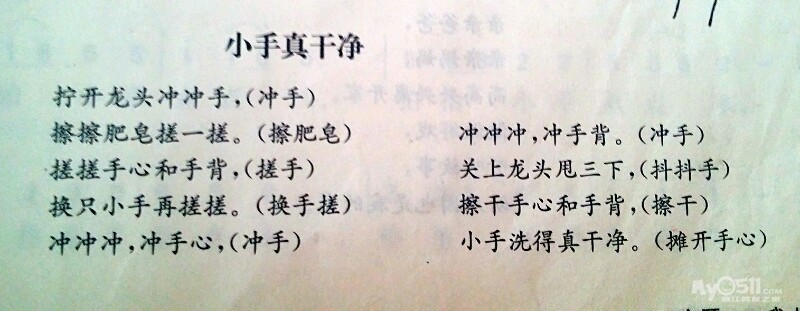 小手真干净
拧开龙头冲冲手，(冲手)
擦擦肥皂搓一搓。(擦肥皂)
搓搓手心和手背，(搓手)
换只小手再搓搓。(换手搓)
冲冲冲，冲手心，(冲手)
冲冲冲，冲手背。(冲手)
关上龙头甩三下，(抖抖手)
擦干手心和手背，(擦干)
小手洗得真干净。(摊开手心)
My0511.COM